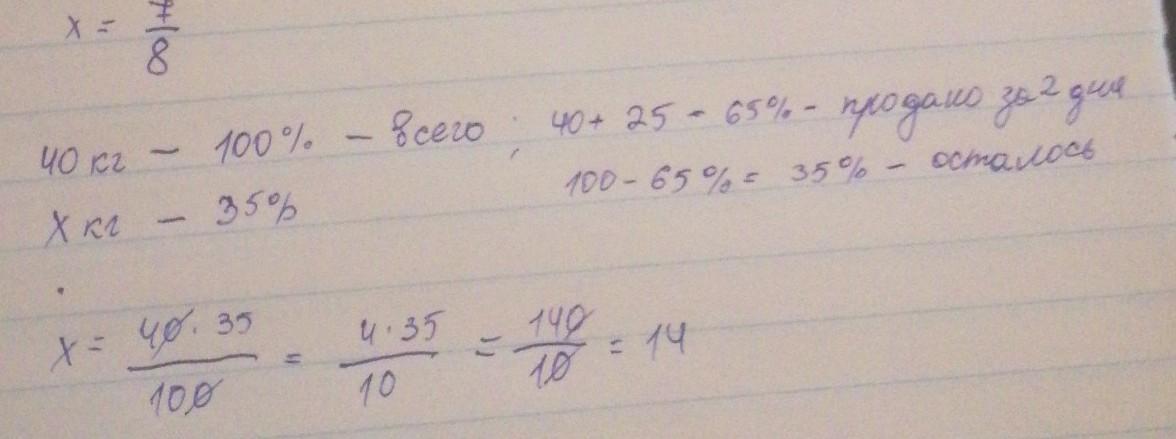 x = 7/8
40 кг - 100% - всего ; 40 + 25 = 65% - продано за 2 дня
x кг - 35% 100 - 65% = 35% - осталось
x = 40 · 35 / 100 = 4 · 35 / 10 = 140 / 10 = 14